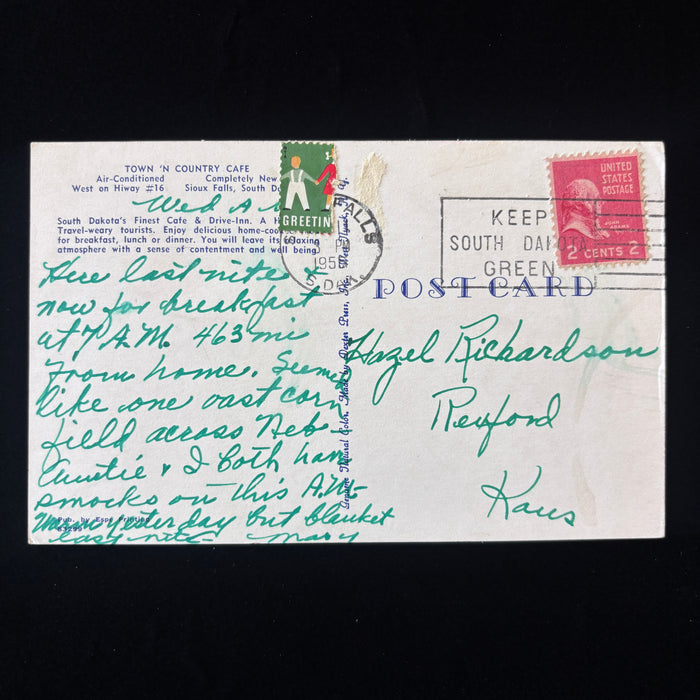 TOWN 'N COUNTRY CAFE
Air-Conditioned Completely New
West on Hiway #16 Sioux Falls, South Da
Wed A.
South Dakota's Finest Cafe & Drive-Inn. A H
Travel-weary tourists. Enjoy delicious home-coo
for breakfast, lunch or dinner. You will leave its
atmosphere with a sense of contentment and well being
Here last nite &
now for breakfast
at 7 A.M. 463 mi
from home. Seemed
like one vast corn
field across Neb-
Auntie & I both have
smocks on this A.M.
yesterday but blanket
last nite- Mary
Pub. by Espe Printing
GREETIN
FALLS
PM
195
S. DAK
Genuine Natural Color. Made by Dexter Press, Inc. West Nyack, N.Y.
KEEP
SOUTH DAKOTA
GREEN
UNITED
STATES
POSTAGE
JOHN
ADAMS
2 CENTS 2
POST CARD
Hazel Richardson
Rexford
Kans